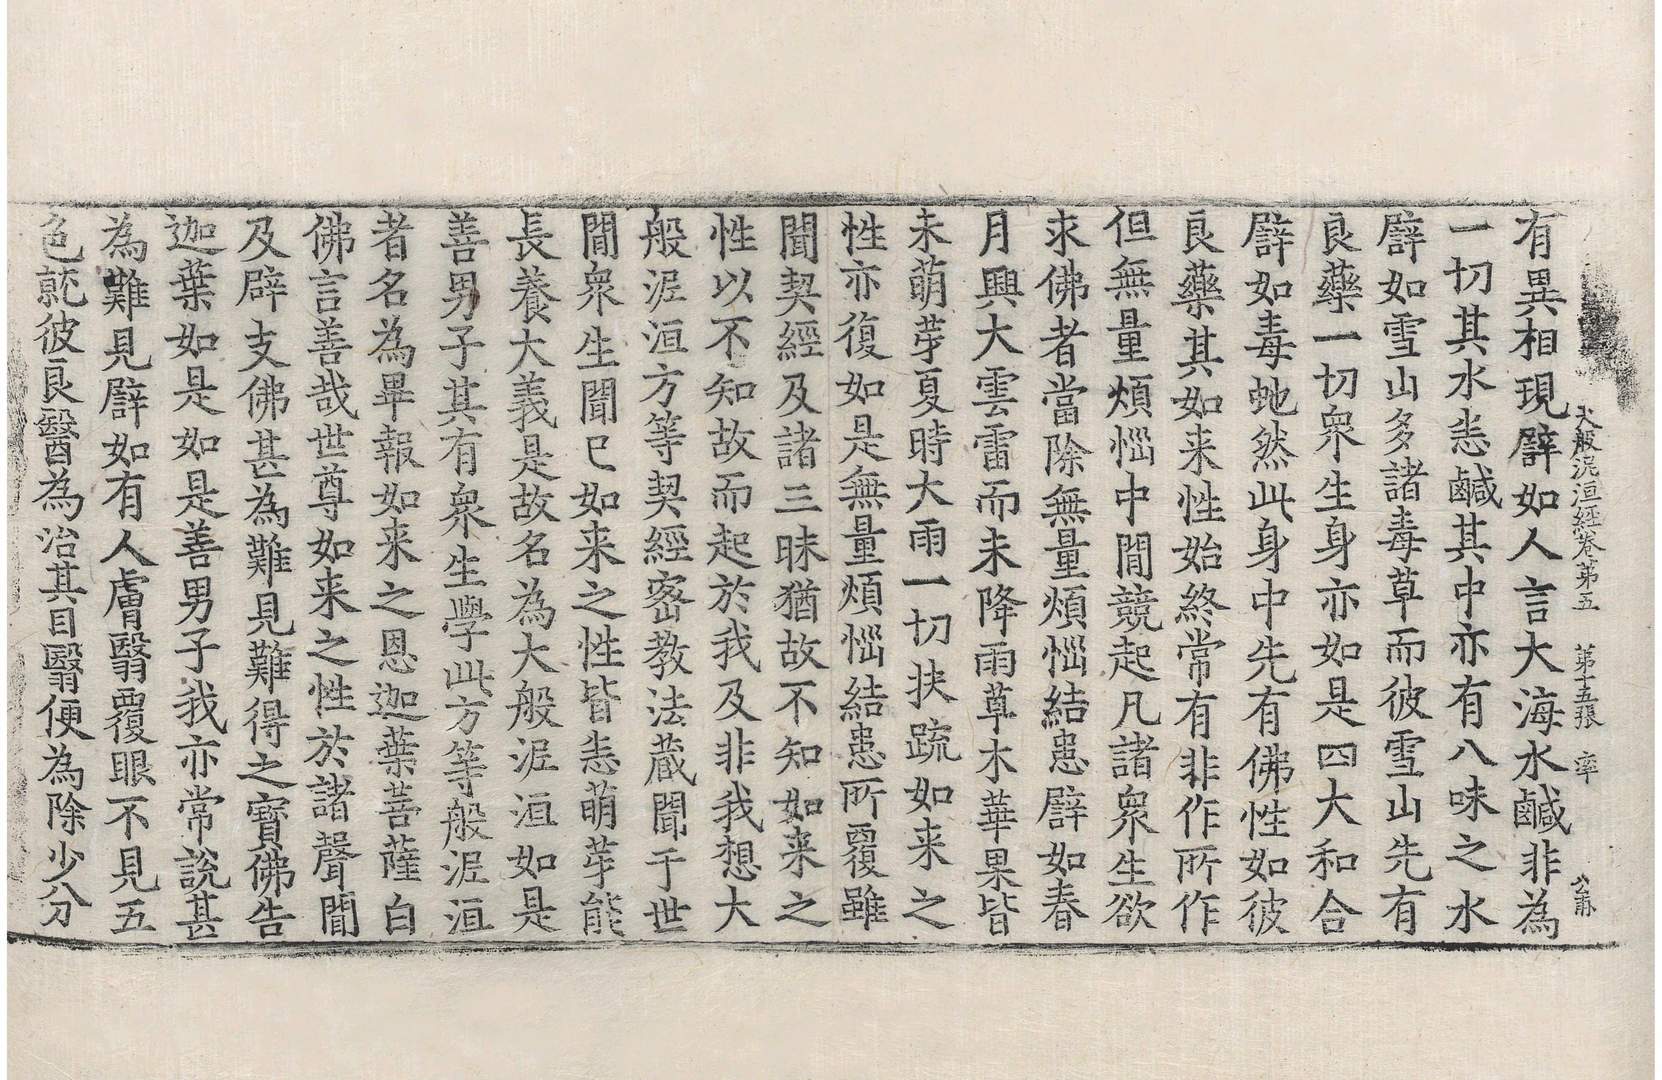 大般泥洹經卷第五　第十五張　率
有異相現譬如人言大海水鹹非為
一切其水悉鹹其中亦有八味之水
譬如雪山多諸毒草而彼雪山先有
良藥一切衆生身亦如是四大和合
譬如毒虵然此身中先有佛性如彼
良藥其如来性始終常有非作所作
但無量煩惱中閒競起凡諸衆生欲
求佛者當除無量煩惱結患譬如春
月興大雲雷而未降雨草木華果皆
未萌芽夏時大雨一切扶疏如来之
性亦復如是無量煩惱結患所覆雖
聞契經及諸三昧猶故不知如来之
性以不知故而起於我及非我想大
般泥洹方等契經密教法藏聞于世
閒衆生聞已如来之性皆悉萌芽能
長養大義是故名為大般泥洹如是
善男子其有衆生學此方等般泥洹
者名為畢報如来之恩迦葉菩薩白
佛言善哉世尊如来之性於諸聲聞
及辟支佛甚為難見難得之寶佛告
迦葉如是如是善男子我亦常說甚
為難見譬如有人膚瞖覆眼不見五
色就彼良醫為治其目瞖便為除少分